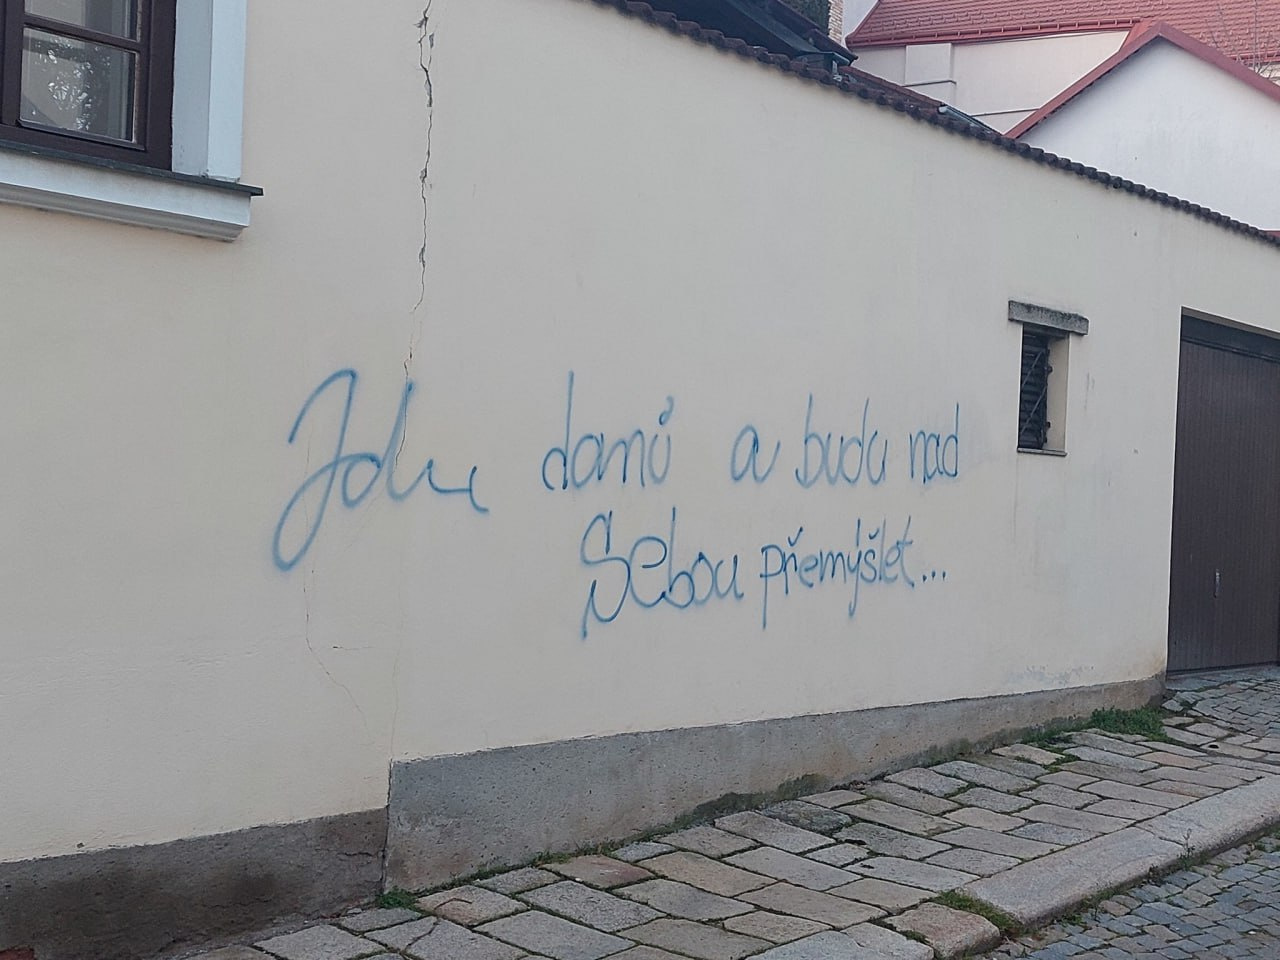 Jdu domů a budu nad
sebou přemýšlet...